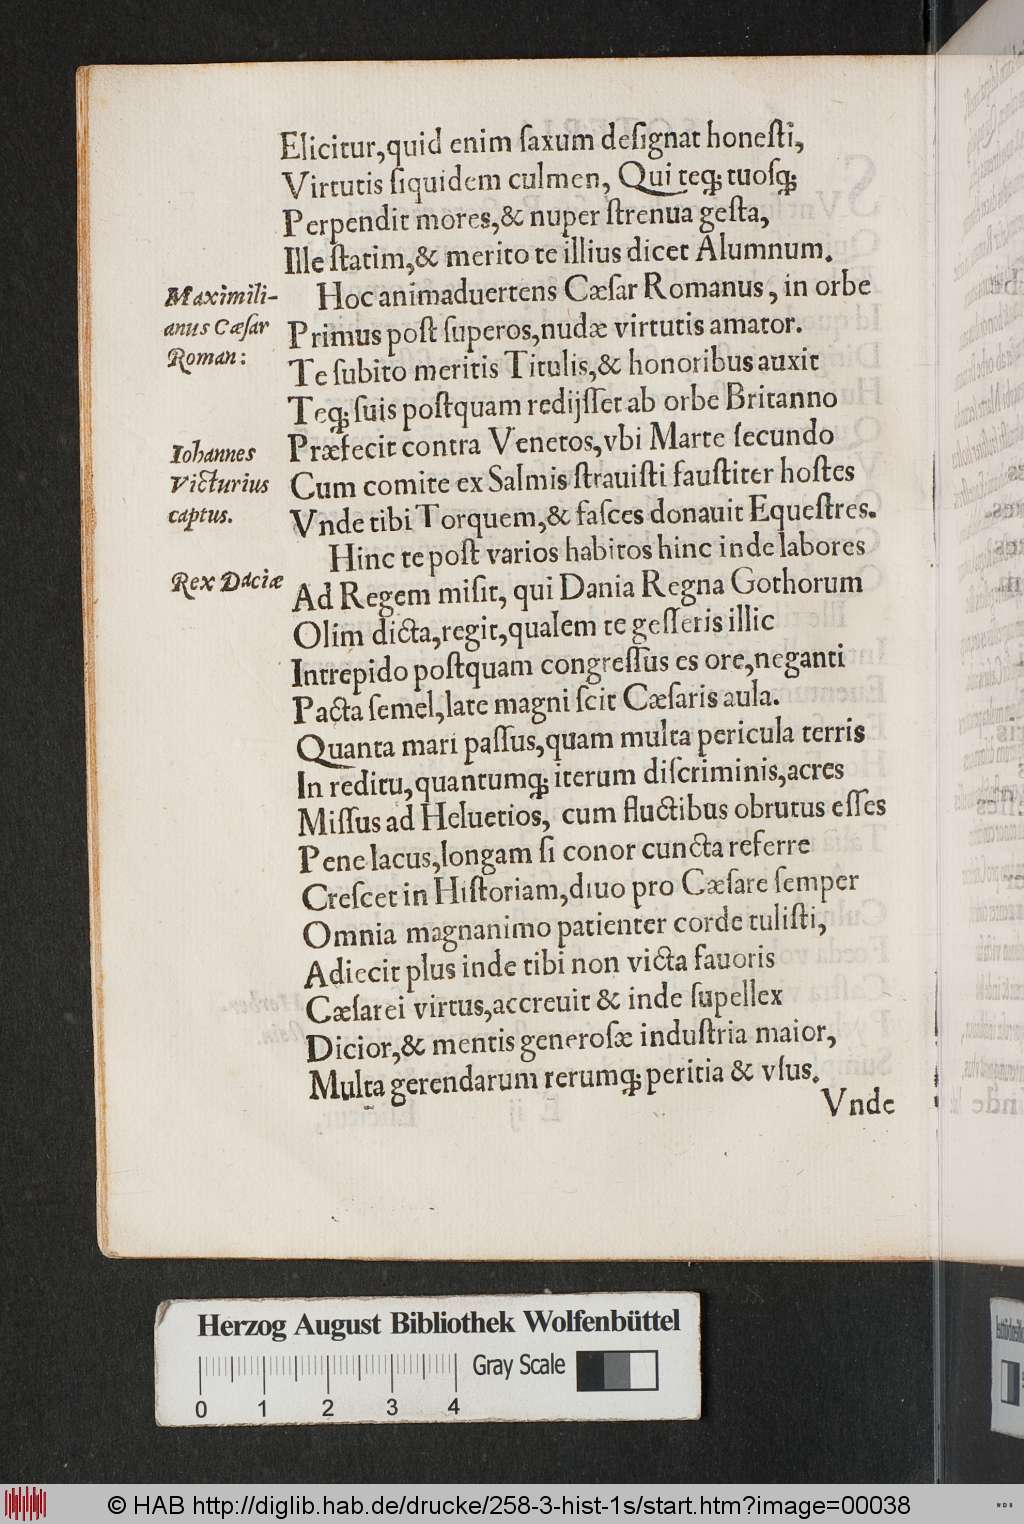 Elicitur,quid enim ſaxum deſignat honeſti,
Virtutis ſiquidem culmen, Qui teqꝫ tuoſqꝫ
Perpendit mores,& nuper ſtrenua geſta,
Ille ſtatim,& merito te illius dicet Alumnum.
Maximili-
anus Cæſar
Roman:
Hoc animaduertens Cæſar Romanus, in orbe
Primus poſt ſuperos,nudæ virtutis amator.
Te ſubito meritis Titulis,& honoribus auxit
Teqꝫ ſuis poſtquam redijſſet ab orbe Britanno
Iohannes
Victurius
captus.
Præfecit contra Venetos,vbi Marte ſecundo
Cum comite ex Salmis ſtrauiſti fauſtiter hoſtes
Vnde tibi Torquem,& faſces donauit Equeſtres.
Hinc te poſt varios habitos hinc inde labores
Rex Daciæ
Ad Regem miſit, qui Dania Regna Gothorum
Olim dicta,regit,qualem te geſſeris illic
Intrepido poſtquam congreſſus es ore,neganti
Pacta ſemel,late magni ſcit Cæſaris aula.
Quanta mari paſſus,quam multa pericula terris
In reditu,quantumqꝫ iterum diſcriminis,acres
Miſſus ad Heluetios, cum fluctibus obrutus eſſes
Pene lacus,longam ſi conor cuncta referre
Creſcet in Hiſtoriam,diuo pro Cæſare ſemper
Omnia magnanimo patienter corde tuliſti,
Adiecit plus inde tibi non victa fauoris
Cæſarei virtus,accreuit & inde ſupellex
Dicior,& mentis generoſæ induſtria maior,
Multa gerendarum rerumqꝫ peritia & vſus.
Vnde
Herzog August Bibliothek Wolfenbüttel
Gray Scale
0 1 2 3 4
© HAB http://diglib.hab.de/drucke/258-3-hist-1s/start.htm?image=00038